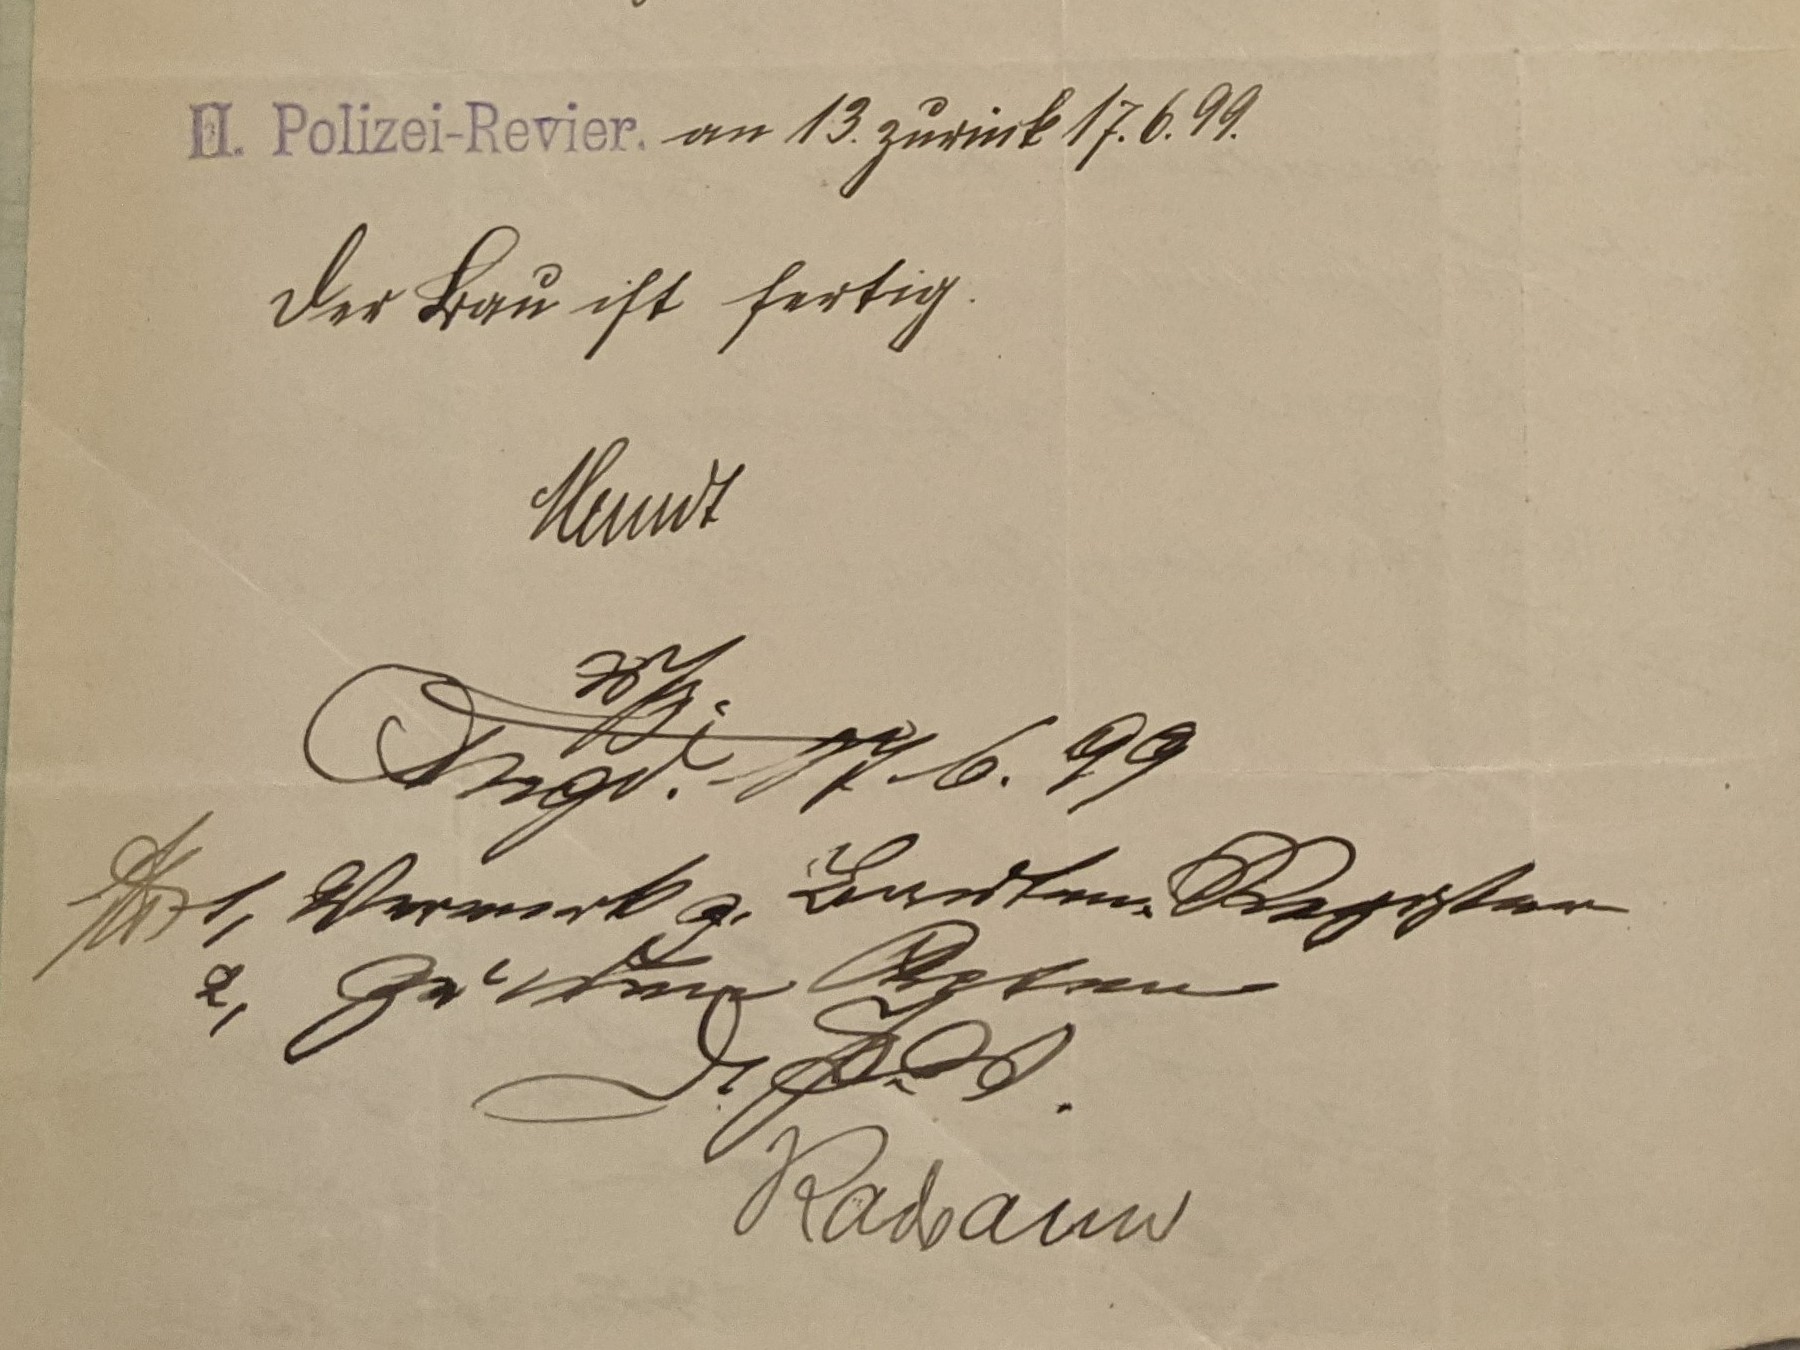 II. Polizei-Revier. an 13. zurück 17.6.99.
Der Bau ist fertig.
Mundt
17.6.99
1, Vermerk z. Bauten-Register
2, Zu den Akten
D. P. V.